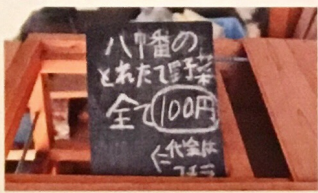 八幡の
とれたて野菜
全て100円
←代金は
コチラ